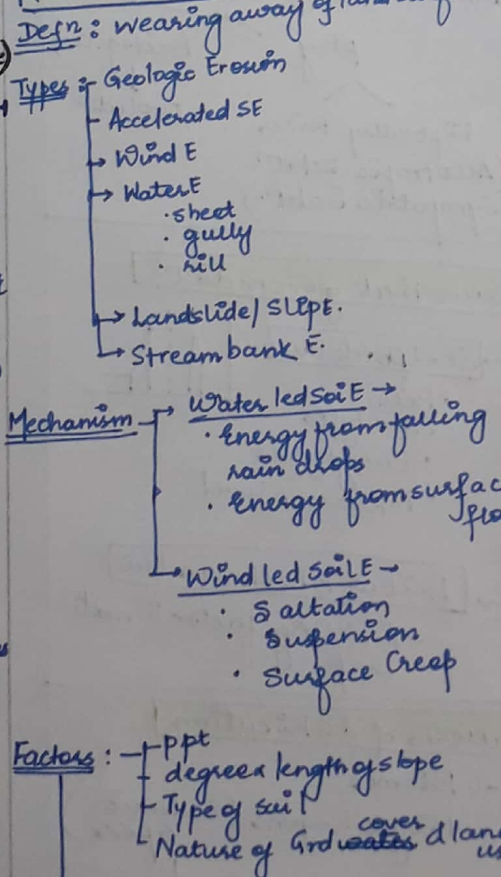 Defn : wearing away of land
Types :- Geologic Erosion
Accelerated SE
→ Wind E
→ Water E
· sheet
· gully
· rill
→ Landslide/ Slip E.
→ Stream bank E.
Mechanism → Water led Soil E →
· Energy from falling
rain drops
· Energy from surfac
flo
→ Wind led Soil E →
· Saltation
· Suspension
· Surface Creep
Factors : - ppt
- degree x length of slope.
- Type of soil
cover
- Nature of Grd & land
us